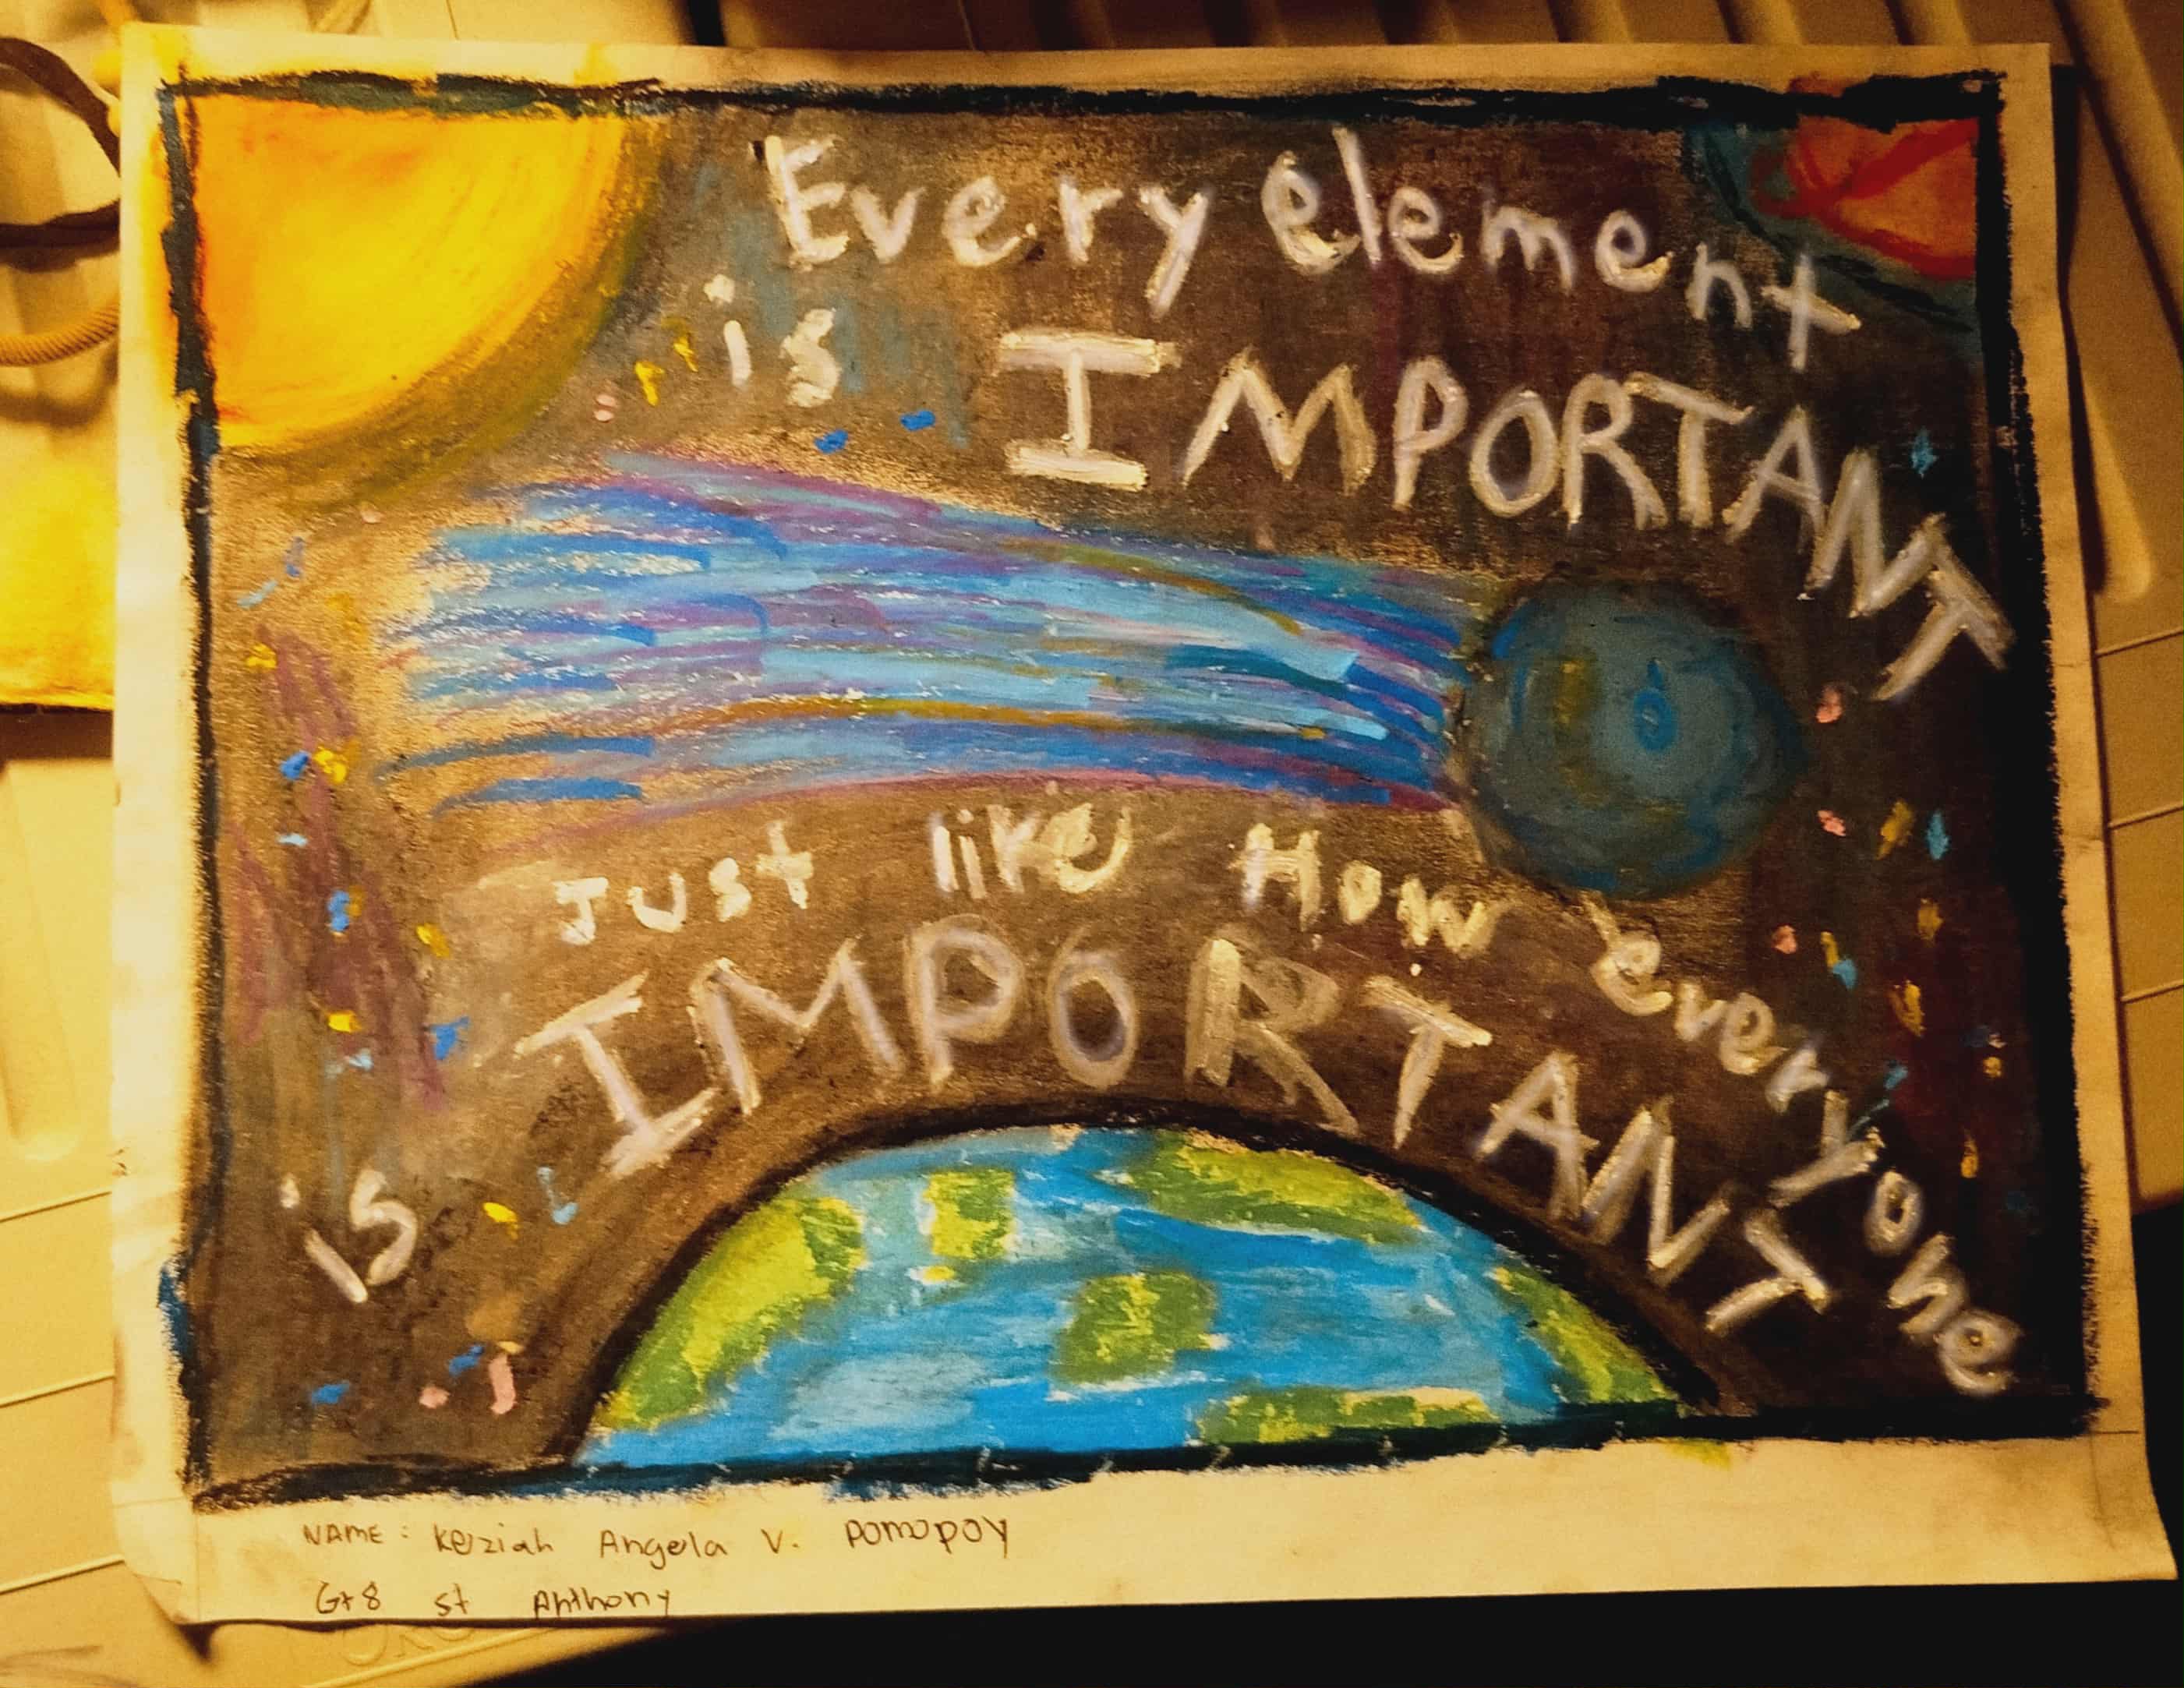 Every element
is IMPORTANT
Just like How everyone
is IMPORTANT
NAME: Keziah Angela V. Pomopoy
Gr8 st Anthony